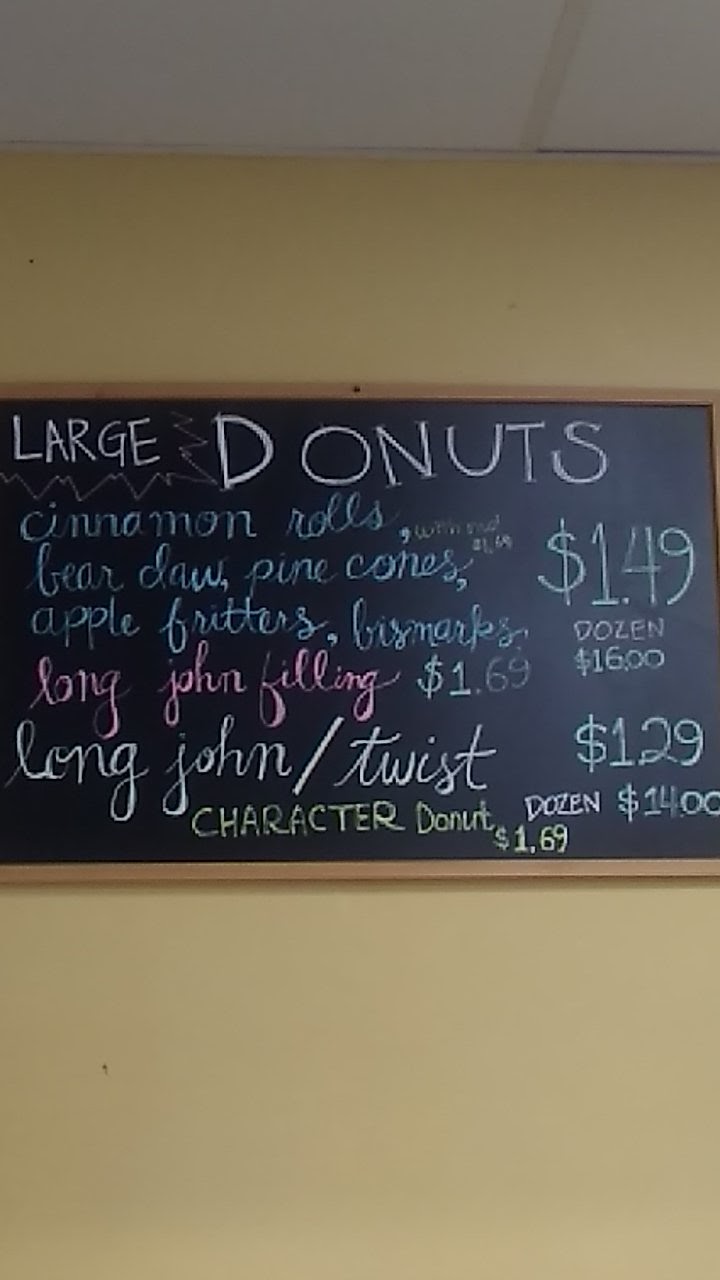 LARGE DONUTS
cinnamon rolls, with nut
$1.69
bear claw, pine cones,
$1.49
apple fritters, bismarks,
DOZEN
$16.00
long john filling $1.69
long john/twist $1.29
DOZEN $14.00
CHARACTER Donut
$1.69